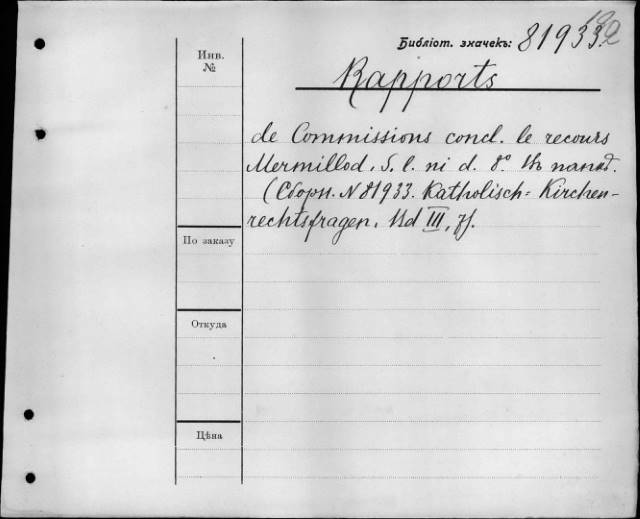 Библіот. значекъ: 81933.
Инв.
№
Rapports
de Commissions concl. le recours
Mermillod. S. l. ni d. 8° Въ папкѣ.
(Сборн. N 81933. Katholisch-Kirchen-
rechtsfragen. Bd III, 7).
По заказу
Откуда
Цѣна